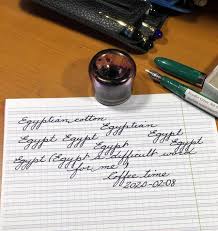 Egyptian cotton
Egyptian
Egypt Egypt Egypt Egypt
Egypt Egypt
Egypt (Egypt is difficult word
for me?
Coffee time
2020-02-08